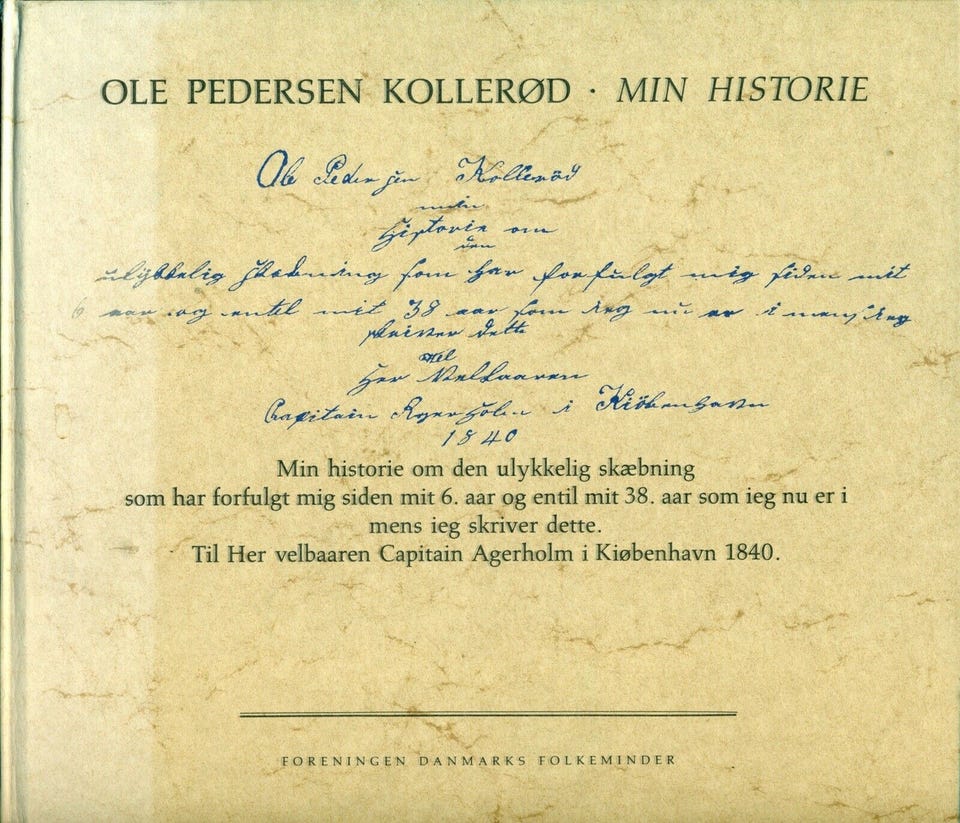 OLE PEDERSEN KOLLERØD · MIN HISTORIE
Ole Pedersen Kollerød
min
Historie om
den
ulykkelig skæbning som har forfulgt mig siden mit
6 aar og entil mit 38 aar som ieg nu er i mens ieg
skriver dette
til
Her Velbaaren
Capitain Agerholm i Kiöbenhavn
1840
Min historie om den ulykkelig skæbning
som har forfulgt mig siden mit 6. aar og entil mit 38. aar som ieg nu er i
mens ieg skriver dette.
Til Her velbaaren Capitain Agerholm i Kiøbenhavn 1840.
FORENINGEN DANMARKS FOLKEMINDER